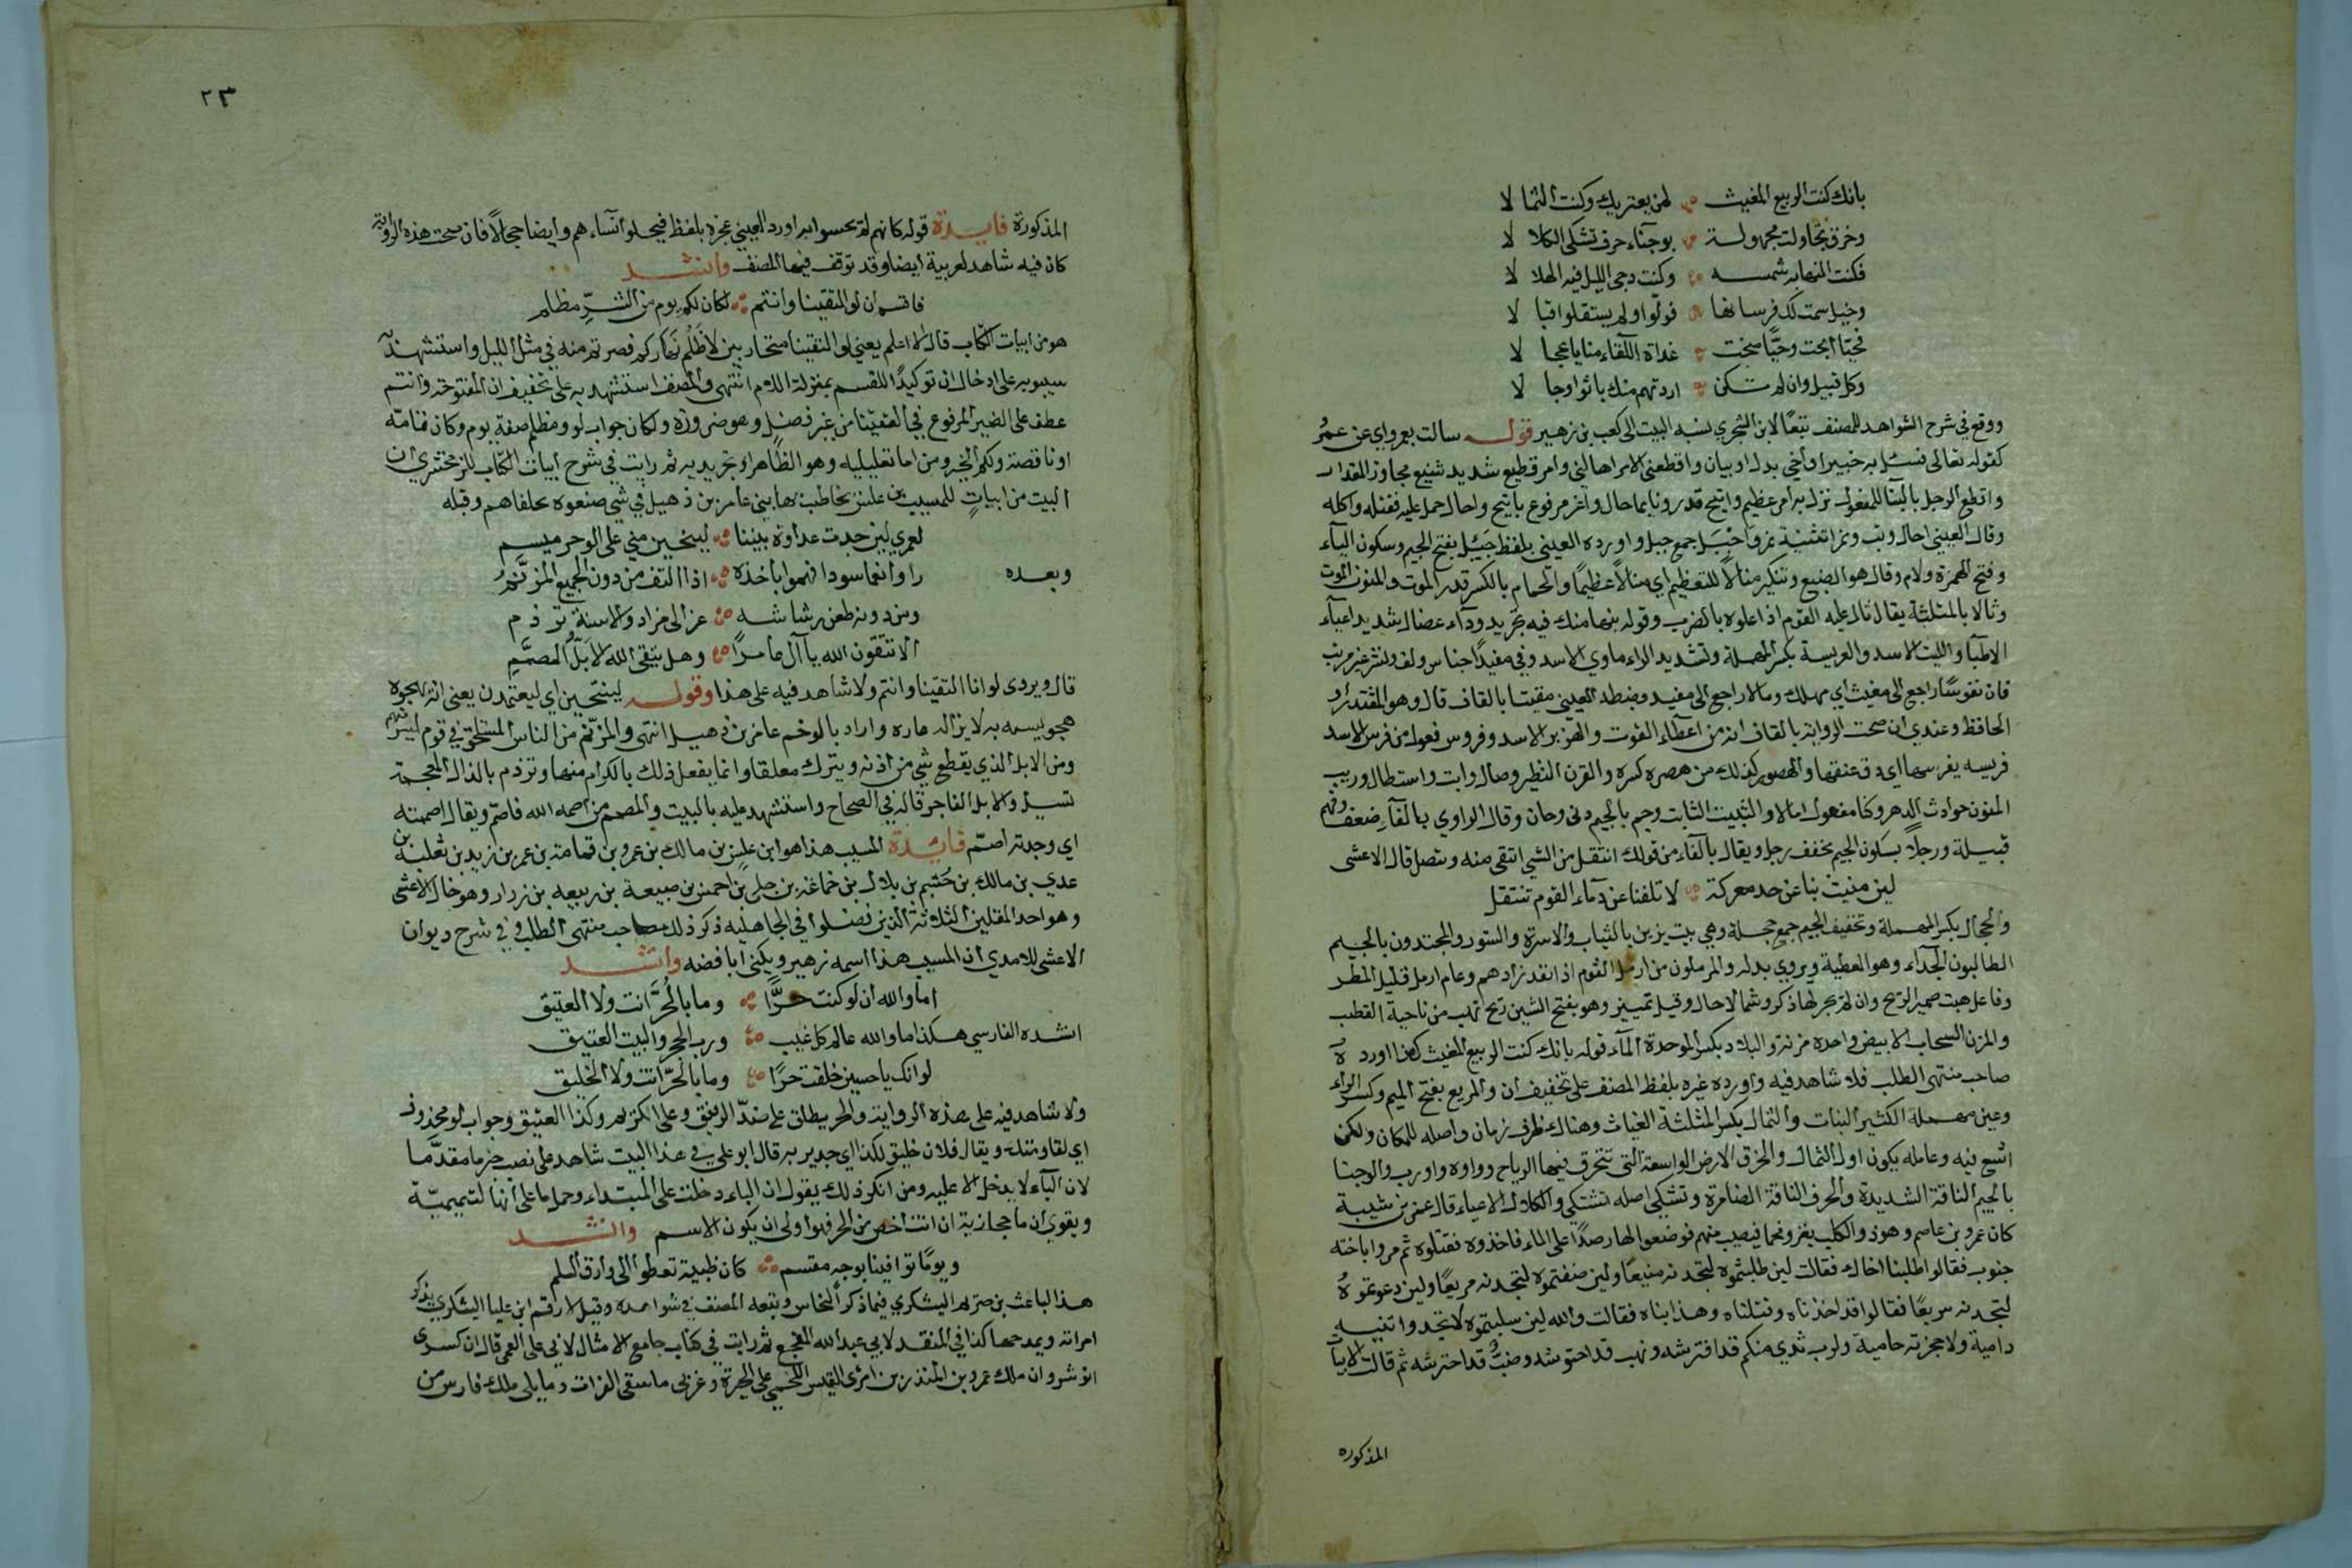 بانك كنت الربيع المغيث لمن يعتريك وكنت الثما لا
وخرق تجاوزت مجهولة بوجناء حرف تشكى الكلا لا
فكنت النهار به شمسه وكنت دجى الليل فيه الهلا لا
وخيل سمت لك فرسانها فولوا ولم يستقلوا قبا لا
فحيا ابحت وحيا صبحت غداة اللقاء منايا عجا لا
وكل قبيل وان لم تكن اردتهم منك باتوا وجا لا
ووقع في شرح الشواهد للمصنف تبعا لابن الشجري نسبة البيت الى كعب بن زهير قوله سالت بعمرو اي عن عمرو
كقوله تعالى فسئل به خبيرا واخي بدل او بيان وافظعني الامر اهالني وامر فظيع شديد شنيع مجاوز المقدار
وافظع الرجل بالبنا للمفعول نزل به امر عظيم واتيح قدر ونايما حال واغر مرفوع باتيح واحال حمل عليه فقتله واكله
وقال العيني احال وثب ونمرا تثنية نمر واجبل جمع جبل واورده العيني بلفظ جيئل بفتح الجيم وسكون الياء
وفتح الهمزة ولام وقال هو الضبع وتنكير منالا للتعظيم اي منالا عظيما والحمام بالكسر قدر الموت والمنون الموت
وثالا بالمثلثة يقال ثال عليه القوم اذا علوه بالضرب وقوله بهما منك فيه تجريد وداء عضال شديد اعياء
الاطباء والليث الاسد والعريسة بكسر المهملة وتشديد الراء ماوي الاسد وفي مفيدا جناس ولف ونشر غير مرتب
فان نفوسا راجع الى مغيث اي مهلك ومالا راجع الى مفيد وضبطه العيني مقيتا بالقاف قال وهو المقتدر او
الحافظ وعندي ان صحت الرواية بالقاف انه من اعطاء القوت والهزبر الاسد وفروس فعول من فرس الاسد
فريسه يفرسها اي دق عنقها والهصور كذلك من هصره كسره والقرن النظير وصال وابت واستطال وريب
المنون حوادث الدهر وكنا مفعول امالا والثبيت الثابت وجم بالجيم دنى وحان وقال الراوي بالفاء ضعف وفهم
قبيلة ورجلا بسكون الجيم مخفف رجل ويقال بالفاء من قولك انتقل من الشي انتفى منه وتنصل قال الاعشى
لين منيت بنا عن حد معركة لا تلفنا عن دماء القوم تنتقل
والحجال بكسر المهملة وتخفيف الجيم جمع حجلة وهي بيت يزين بالثياب والاسرة والستور والمجتدون بالجيم
الطالبون الجداء وهو العطية ويروى بدله والمرملون من ارمل القوم اذا نفد زادهم وعام ارمل قليل المطر
وفاعل هبت ضمير الريح وان لم يجر لها ذكر وشمالا حال وقيل تمييز وهو بفتح الشين ريح تهب من ناحية القطب
والمزن السحاب الابيض واحده مزنة والبلاد بكسر الموحدة الماء قوله بانك كنت الربيع المغيث كذا اورده
صاحب منتهى الطلب فلا شاهد فيه واورده غيره بلفظ المصنف على تخفيف ان والمريع بفتح الميم وكسر الراء
وعين مهملة الكثير النبات والثمال بكسر المثلثة الغياث وهناك ظرف زمان واصله للمكان ولكن
اتسع فيه وعامله يكون او الثمال والخرق الارض الواسعة التي تتخرق فيها الرياح وواوه واو رب والوجنا
بالجيم الناقة الشديدة والحرف الناقة الضامرة وتشكى اصله تتشكى والكلال الاعياء قال عمر بن شيبة
كان عمرو بن عاصم وهو ذو الكلب يغزو فهما فيصيب منهم فوضعوا لها رصدا على الماء فاخذوه فقتلوه ثم مروا باخته
جنوب فقالوا طلبنا اخاك فقالت لين طلبتموه لتجدنه منيعا ولين ضفتموه لتجدنه مريعا ولين دعوتموه
لتجدنه سريعا فقالوا قد اخذناه وقتلناه وهذا بناه فقالت والله لين سلبتموه لا تجدوا
دامية ولا حجزته حامية ولرب ثدي منكم قد افترشه ونهب قد احتوشه وضب قد احترشه ثم قالت الابيات
المذكوره
٢٣
المذكورة فايدة قوله كانهم لم يحسوا به اورد العيني عجزه بلفظ فيخلوا نساءهم وايضا حجالا فان صحت هذه الرواية
كان فيه شاهد لعربية ايضا وقد توقف فيها المصنف وانشد
فاقسم ان لو التقينا وانتم لكان لكم يوم من الشر مظلم
هو من ابيات الكتاب قال الاعلم يعني لو التقينا متحاربين لاظلم نهاركم فصرتم منه في مثل الليل واستشهد به
سيبويه على ادخال ان توكيدا للقسم بمنزلة اللام انتهى والمصنف استشهد به على تخفيف ان المفتوحة وانتم
عطف على الضمير المرفوع في التقينا من غير فصل وهو ضرورة ولكان جواب لو ومظلم صفة يوم وكان تامة
او ناقصة ولكم الخبر ومن اما تعليلية وهو الظاهر او تجريدية ثم رايت في شرح ابيات الكتاب للزمخشري ان
البيت من ابيات للمسيب بن علس يخاطب بها بني عامر بن ذهيل في شي صنعوه بحلفاهم وقبله
لعمري لين جدت عداوة بيننا لينتحين مني على الوخم ميسم
وبعده راوا نعما سودا فهموا باخذه اذا التف من دون الجميع المزنم
ومن دونه طعن رشاشه عزالى مزاد والاسنة ترذم
الا تتقون الله يا آل عامر وهل يتقي الله الابل المصمم
قال ويروى لو انا التقينا وانتم ولا شاهد فيه على هذا وقوله لينتحين اي ليعتمدن يعني انه يهجوه
هجو يسمه به لا يزال عاره واراد بالوخم عامر بن ذهيل انتهى والمزنم من الناس الملتحق في قوم ليس منهم
ومن الابل الذي يقطع شي من اذنه ويترك معلقا وانما يفعل ذلك بالكرام منها وترذم بالذال المعجمة
تسيل والابل الفاجر قاله في الصحاح واستشهد عليه بالبيت والمصمم من اصمه الله فاصم ويقال اصممته
اي وجدته اصم فائدة المسيب هذا هو ابن علس بن مالك بن عمرو بن قمامة بن عمر بن زيد بن ثعلبة بن
عدي بن مالك بن حشم بن بلال بن خماعة بن جلى بن احمس بن ضبيعة بن ربيعه بن نزار وهو خال الاعشى
وهو احد المقلين الثلاثة الذين فضلوا في الجاهلية ذكر ذلك صاحب منتهى الطلب وفي شرح ديوان
الاعشى للامدي ان المسيب هذا اسمه زهير ويكنى ابا فضه وانشد
اما والله ان لو كنت حرا وما بالحر انت ولا العتيق
انشده الفارسي هكذا اما والله عالم كل غيب ورب الحجر والبيت العتيق
لو انك يا حسين خلقت حرا وما بالحر انت ولا الخليق
ولا شاهد فيه على هذه الرواية والحر يطلق على ضد الرقيق وعلى الكريم وكذا العتيق وجواب لو محذوف
اي لقاومتك ويقال فلان خليق لكذا اي جدير به قال ابو علي في هذا البيت شاهد على نصب خبر ما مقدما
لان الباء لا يدخل الا عليه ومن انكر ذلك يقول ان الباء دخلت على المبتداء وحمل ما على انها التميمية
ويقوي ان ما حجازية ان انت اخص من الحر فهو اولى ان يكون الاسم وانشد
ويوما توافينا بوجه مقسم كان ظبية تعطوا الى وارق السلم
هذا لباعث بن صريم اليشكري فيما ذكر النحاس وتبعه المصنف في شواهده وقيل لارقم ابن علبا اليشكري يذكر
امراته ويمدحها كذا في المنقد لابي عبد الله المفجع ثم رايت في كتاب جامع الامثال لابي علي القمي قال ان كسرى
انوشروان ملك عمرو بن المنذر بن امرئ القيس اللخمي على الحيرة وغربي ماسقى الفرات وما يلي ملك فارس من